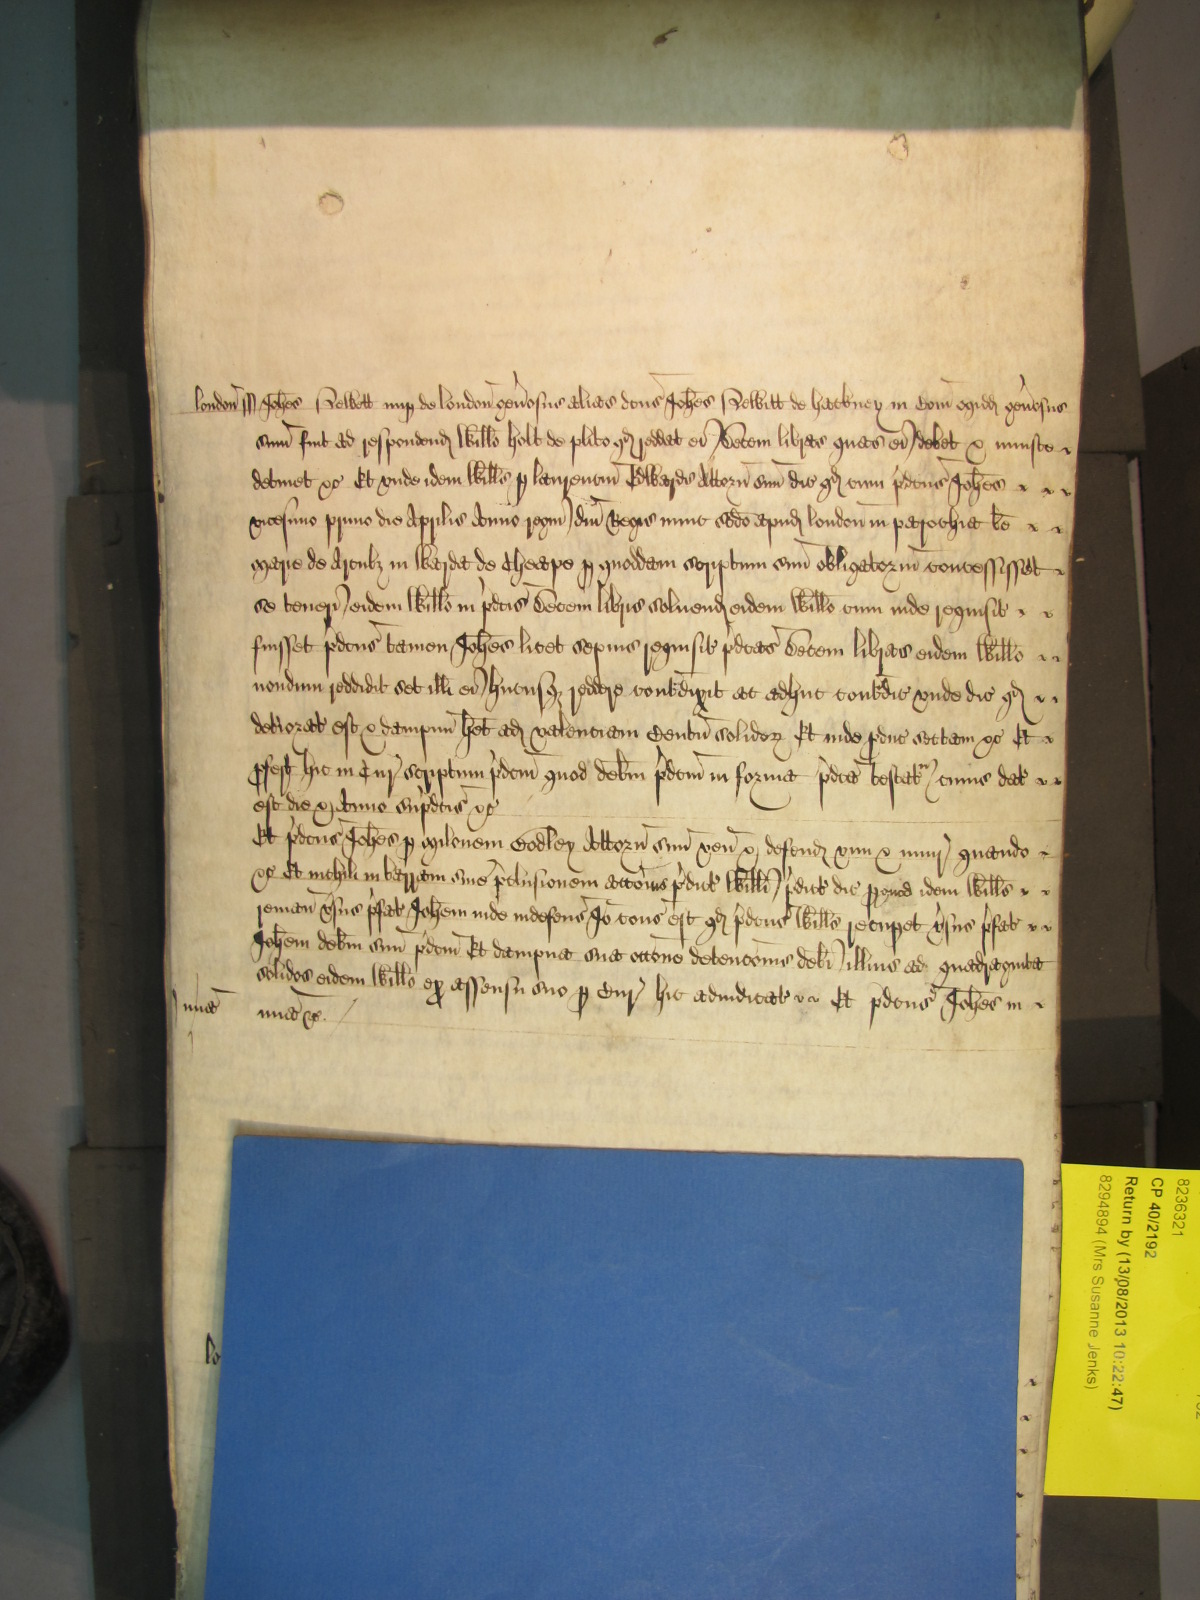 london ss Johes Relbett nup de london genosus alias dcus Johes Relbitt de hackney in Com midd genosus
sum fuit ad respondend Willo holt de plito qd reddat ei Decem libras quas ei debet & iniuste
detinet &c Et unde idem Wills p laurencium Edwardis Attorn suu dic qd cum pdcus Johes
vicesimo primo die Aprilis Anno regni dni Regis nunc scdo apud london in parochia be
marie de Arcubz in Warda de Cheape p quoddam scriptum suu obligatoriu concessisset
se teneri eidem Willo in pdcis Decem libris solvend eidem Willo cum inde requisit
fuisset pdcus tamen Johes licet sepius requisit pdcas Decem libras eidem Willo
nondum reddidit set ill ei hucusqz reddre contradixit ac adhuc contradic unde dic qd
deteriorat est & dampnu het ad valenciam Centu solidoz Et inde pduc sectam &c Et
pfert hic in Cur scriptum pdcm quod debm pdcm in forma pdca testatr cuius dat
est die & Anno supdcis &c
Et pdcus Johes p milonem Godley Attorn suu ven & defend vim & iniur quando
&c Et nichil in barram sive pclusionem accois pdict Willi pdict dic p quod idem Wills
reman vsus pfat Johem inde indefens Io cons est qd pdcus Wills recupet vsus pfat
Johem debm suu pdcm Et dampna sua occone detencois debi illius ad quadraginta
solidos eidem Willo ex assensu suo p Cur hic adiudicat Et pdcus Johes in
mia mia &c
lo
8236321
CP 40/2192
Return by (13/08/2013 10:22:47)
8294894 (Mrs Susanne Jenks)